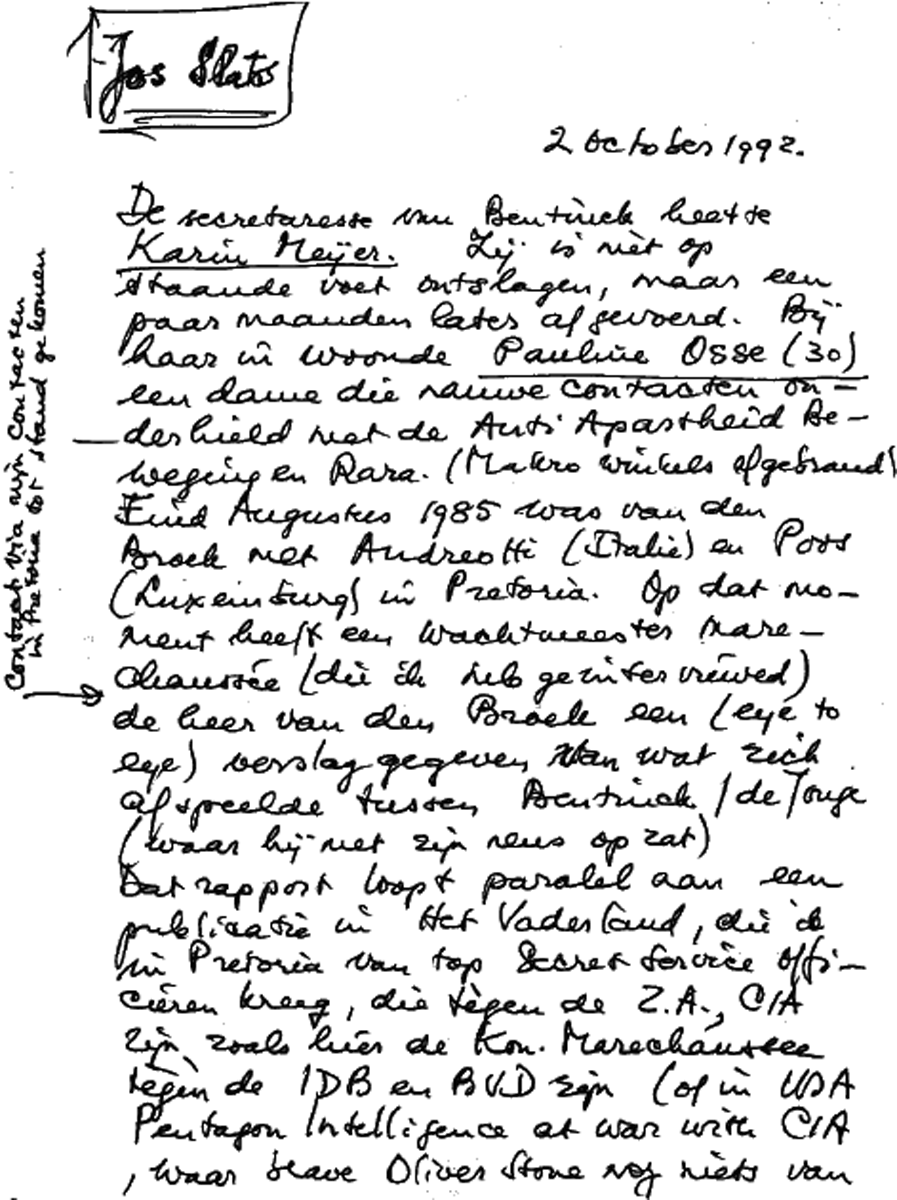 Jos Slats
2 October 1992.
De secretaresse van Bentinck heette
Karin Meÿer. Zÿ is niet op
staande voet ontslagen, maar een
paar maanden later afgevoerd. Bÿ
haar in woonde Pauline Osse (30)
een dame die nauwe contacten on-
derhield met de Anti Apartheid Be-
weging en Rara. (Makro winkels afgebrand)
Eind Augustus 1985 was van den
Broek met Andreotti (Italië) en Poos
(Luxemburg) in Pretoria. Op dat mo-
ment heeft een Wachtmeester Mare-
chaussée (die ik heb geinterviewed)
de heer van den Broek een (eye to
eye) verslag gegeven van wat zich
afspeelde tussen Bentinck / de Jonge
(waar hÿ met zÿn neus op zat)
Dat rapport loopt paralel aan een
publicatie in Het Vaderland, die ik
in Pretoria van top Secret Service offi-
cieren kreeg, die tegen de Z.A., CIA
zÿn, zoals hier de Kon. Marechaussee
tegen de IDB en BVD zÿn (of in USA
Pentagon Intelligence at war with CIA
, waar brave Oliver Stone nog niets van
Contact via mÿn contacten
in Pretoria tot stand gekomen